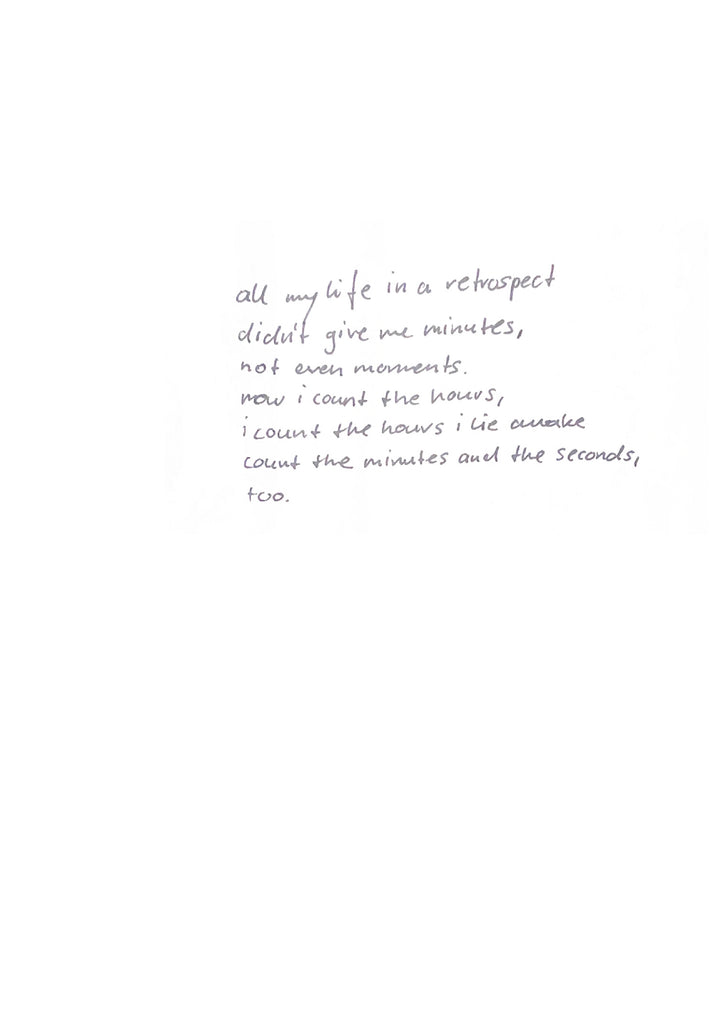 all my life in a retrospect
didn't give me minutes,
not even moments.
now i count the hours,
i count the hours i lie awake
count the minutes and the seconds,
too.